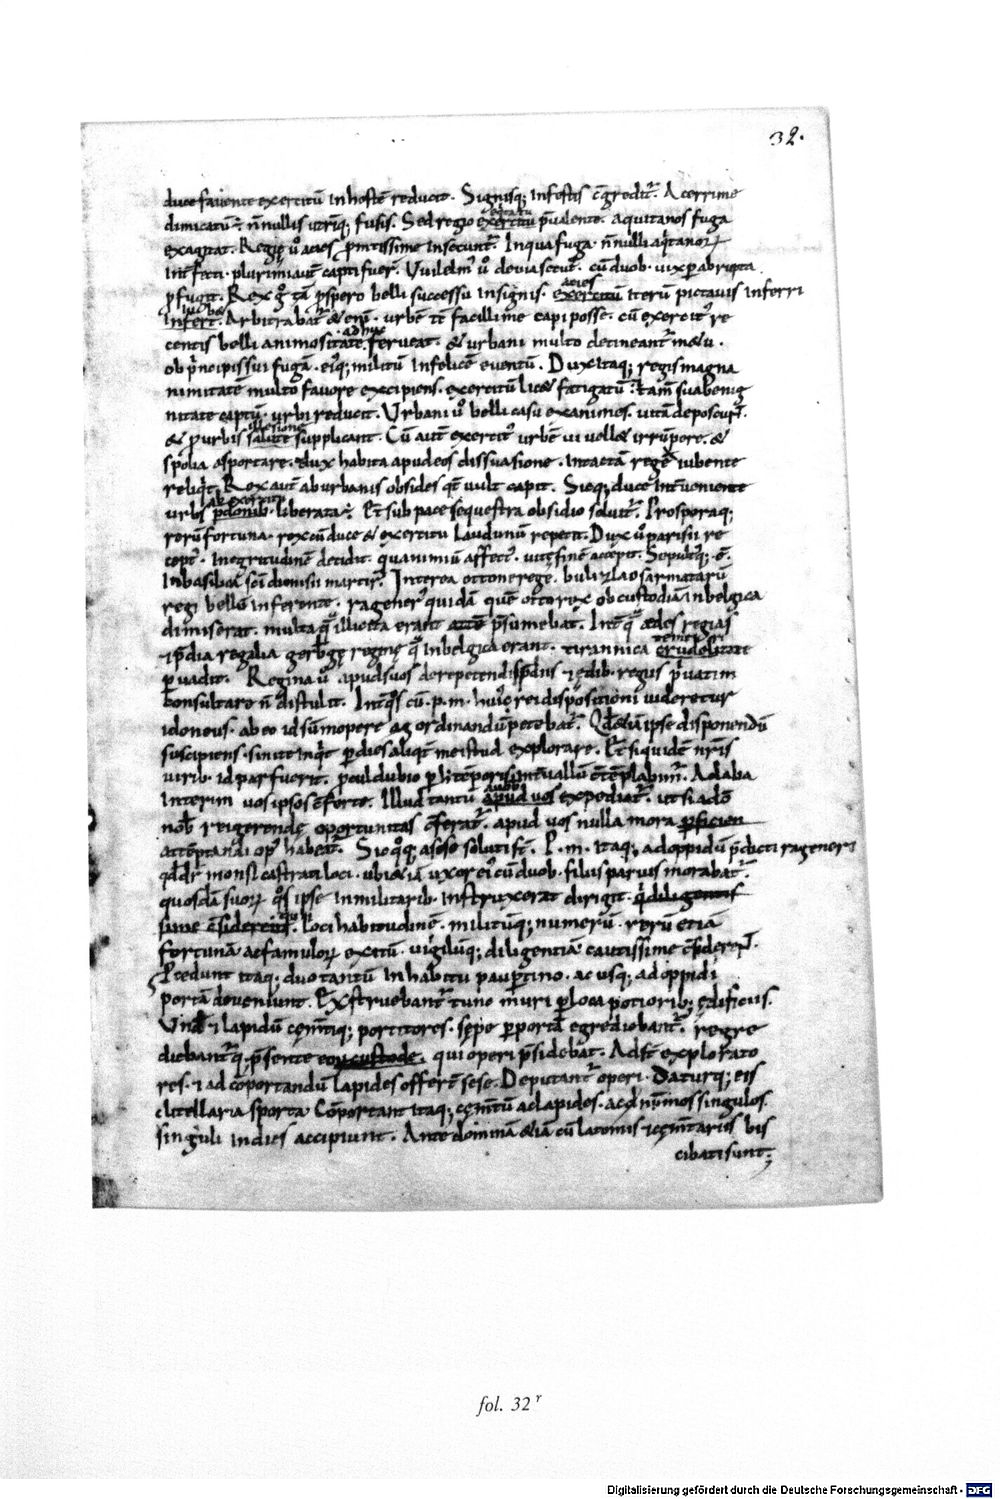 32.
duce favente exercitū in hostē reducit. Signisq; infestis c̄gredit̄. Acerrime
dimicatū ÷ ñnullis utrinq; fusis. Sed regio exercitu p̄valente. aquitanos fuga
equitatu
exagitat. Regię ů acies p̄mtissime insecunt̄. In qua fuga ñnulli aq̇tanoꝝ
int̄fecti. plurimi aut̄ capti fuer̄. Vuilelm' ů devia sectus. cū duob. vix p abrupta
ꝓfugit. Rex g° tā ꝓspero belli successu insignis. exercitū iterū pictavis inferri
acies
iubet
infert. Arbitrabat̄ & eni. urbē tc̄ facillime capi posse. cū exercit' re
centis belli animositate ferveat. & urbani multo detineant̄ metu.
adhuc
ob p̄ncipis sui fugā. ei'q; militū infelicē eventū. Dux itaq; regis magna
nimitatē multo favore excipiens. exercitū lic& fatigatū. tam̄ sua benig
nitate captū. urbi reducit. Urbani ů belli casu exanimes. vitā deposcunt.
& ꝓ urbis salute supplicant. Cū aut̄ exercit' urbē vi vell& irrūpere. &
illesione
spolia asportare. dux habita apud eos dissuasione. intactā rege iubente
reliq̇t. Rex aut̄ ab urbanis obsides q̄t vult capit. Sicq; duce int̄veniente
ab exercitu
urbs p̄donib. liberata ÷. Et sub pace sequestra obsidio solvit̄. Prosperaq;
rerū fortuna. rex cū duce & exercitu Laudunū repetit. Dux ů parisii re
cept'. in egritudinē decidit. qua nimiū affect'. vitę finē accepit. Sepult'q; ē.
in basilica sc̄i dionisii martir̄. Interea ottone rege. bulizlao sarmatarū
regi bellū inferente. ragener' quidā quē otto rex ob custodiā in belgica
dimiserat. multa q̄ illicita erant p̄sumebat. Int̄ q̄ ædes regias
& p̄dia regalia gerb̄gę reginę q̄ in belgica erant. tirannica crudelitate
temeritate
pvadit. Regina ů apud suos de repetendis p̄diis & ędib. regiis p̄vatim
consultare ñ distulit. Int̄ q°s cū .p. m. hui' rei dispositioni videretur
idoneus. ab eo id sūmopere ordinandū petebat̄. Qd̄ &iā ipse disponendū
suscipiens. sinite inq̇t p dies aliq°t me istud explorare. Et siquidē nr̄is
virib. id par fuerit. ꝓcul dubio p h' tēporis int̄vallū c̄tēplabimur. At aba
Interim vos ipsos c̄ferte. Illud tantū apud vos expediat̄. ut si a dō
a vob
nob reigerendę oportunitas c̄ferat̄. apud vos nulla mora perficien
attēptandi op' habeat̄. Sicq°q; a sese soluti st̄. P. m. itaq; ad oppidū p̄dicti rageneri
qd̄ dr̄ mons castrati loci. ubi &iā uxor ei' cū duob. filiis parvis morabat̄.
quosdā suoꝝ q°s ipse in militarib. instruxerat dirigit. q̇ diligentis
sime c̄siderent. loci habitudinē. militūq; numerū. rerū etiā
fortunā ac famuloꝝ exitū. vigilūq; diligentiā cautissime c̄siderent.
Pcedunt itaq; duo tantū in habitu paup̄tino. ac usq; ad oppidi
portā deveniunt. Exstruebant̄ tunc muri p loca potiorib; ędificiis.
Unde & lapidū cęm̄tiq; portitores. sępe p portā egrediebant̄. regre
diebant̄q; p̄sente custode. qui operi p̄sidebat. Adst̄ explorato
res. & ad cōportandū lapides offert sese. Deputant̄ operi. Daturq; eis
clitellaria sporta. Cōportant itaq; cęm̄tū ac lapides. ac dñmos singulos.
singuli in dies accipiunt. Ante dominā &iā cū latomis & cęm̄tariis bis
cibati sunt;
fol. 32 r
Digitalisierung gefördert durch die Deutsche Forschungsgemeinschaft - DFG